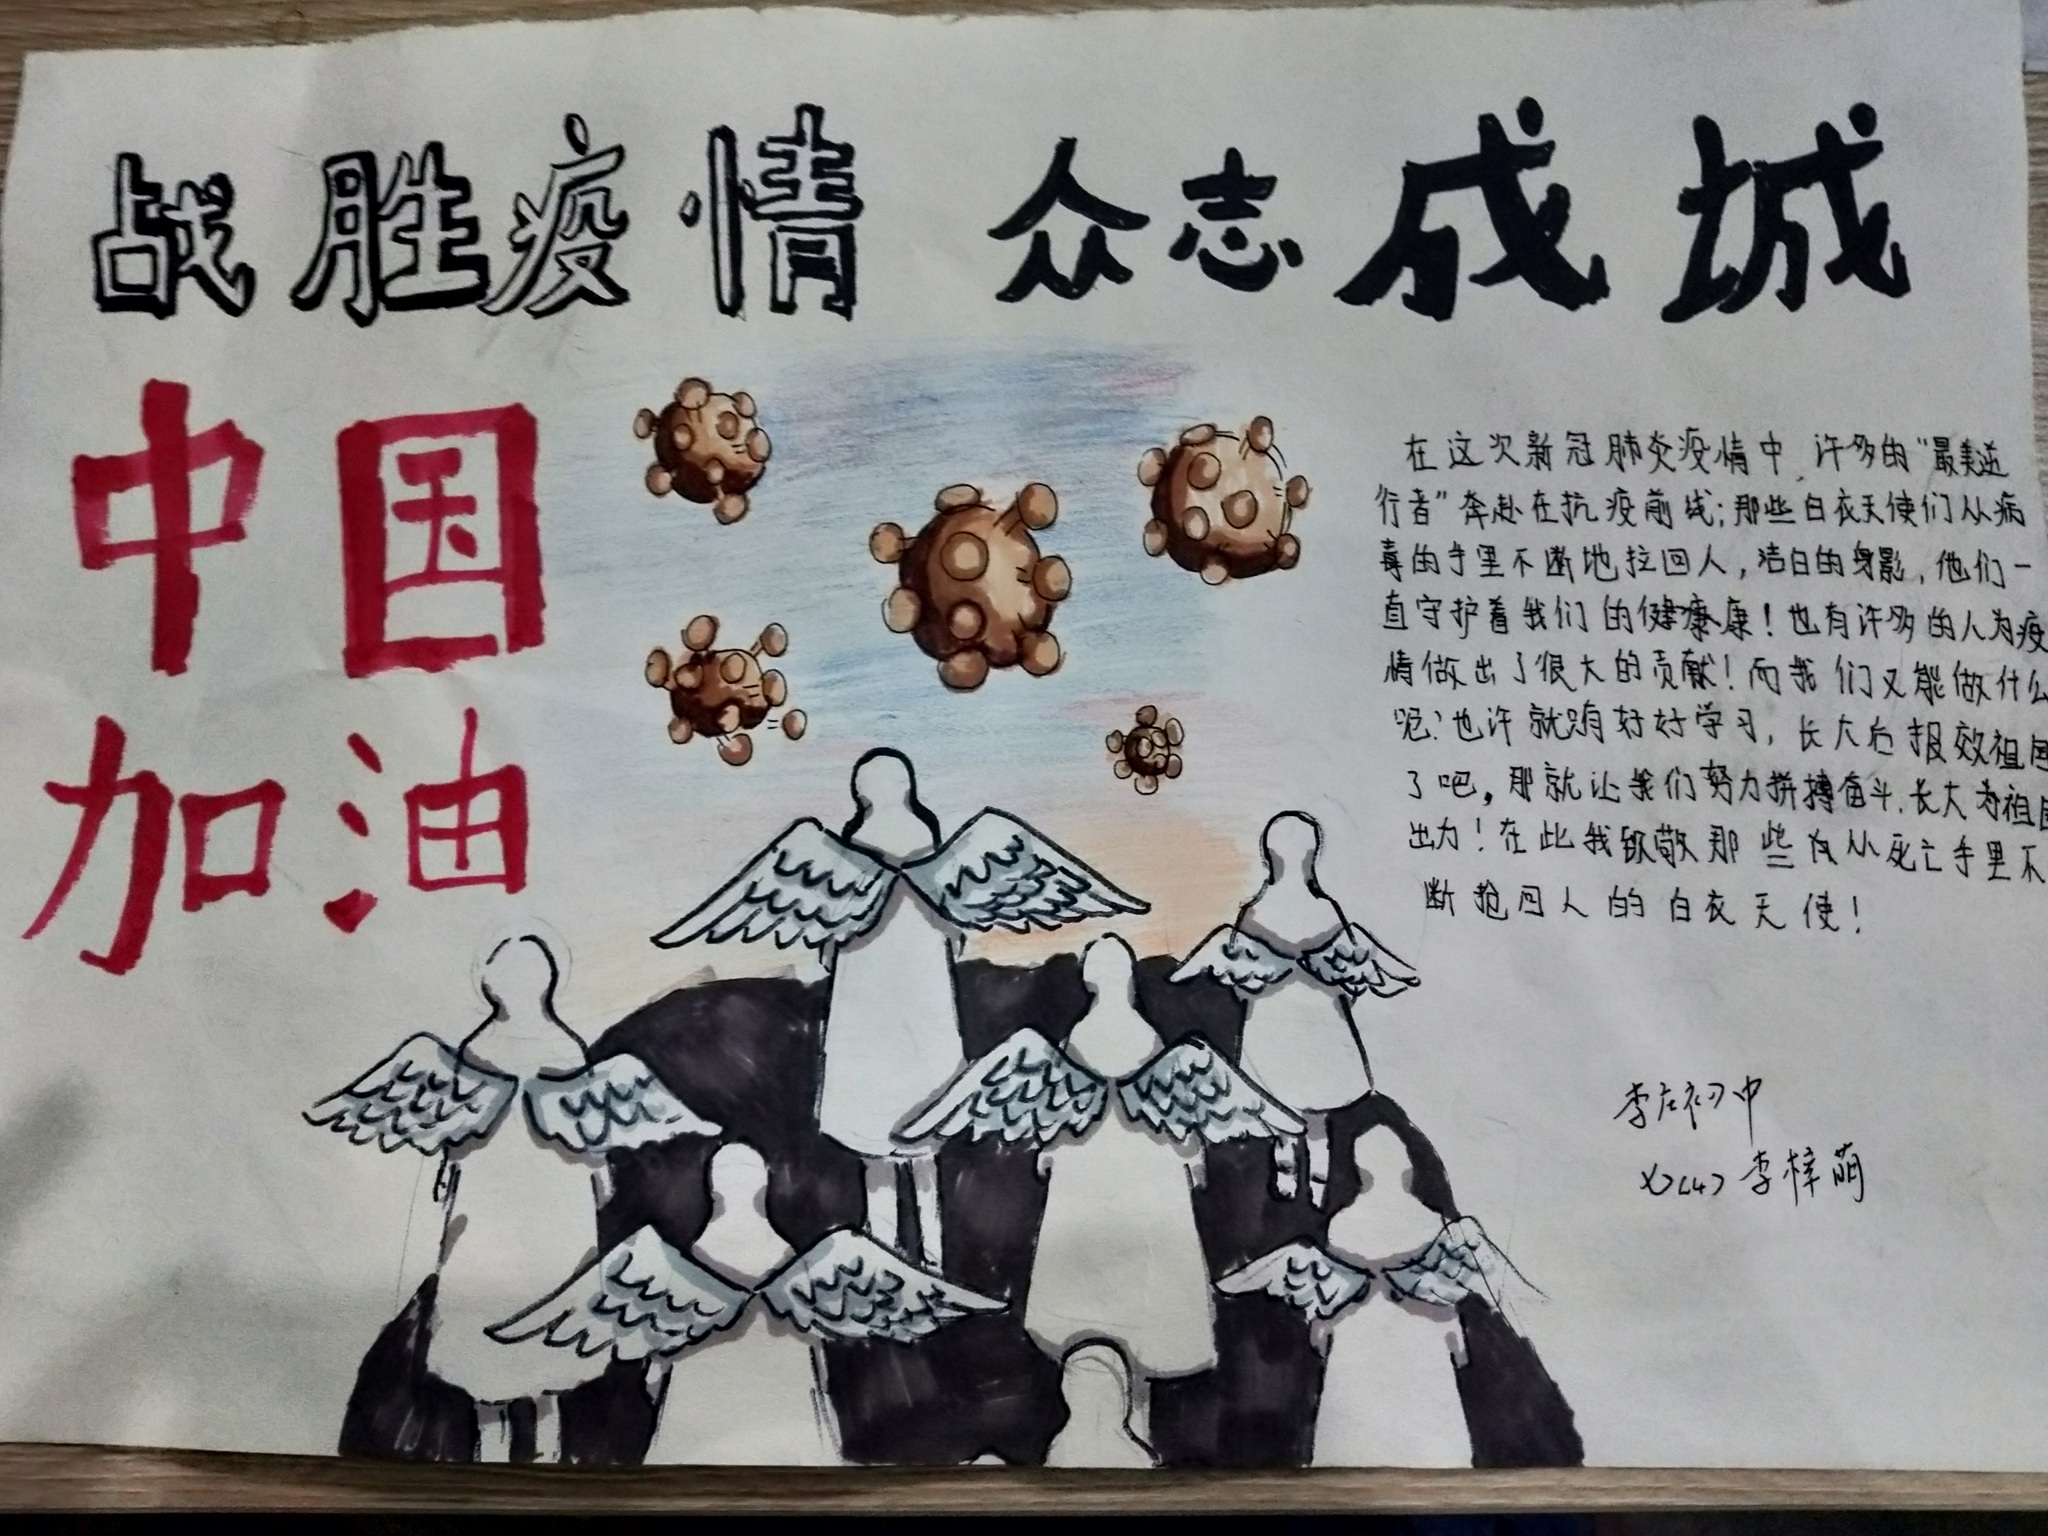 战胜疫情 众志成城
中国
加油
在这次新冠肺炎疫情中,许多的“最美逆
行者”奔赴在抗疫前线;那些白衣天使们从病
毒的手里不断地拉回人,洁白的身影,他们一
直守护着我们的健康康!也有许多的人为疫
情做出了很大的贡献!而我们又能做什么
呢?也许就只有好好学习,长大后报效祖国
了吧,那就让我们努力拼搏奋斗.长大为祖国
出力!在此我致敬那些次从死亡手里不
断抢回人的白衣天使!
李庄初中
七(4) 李梓萌